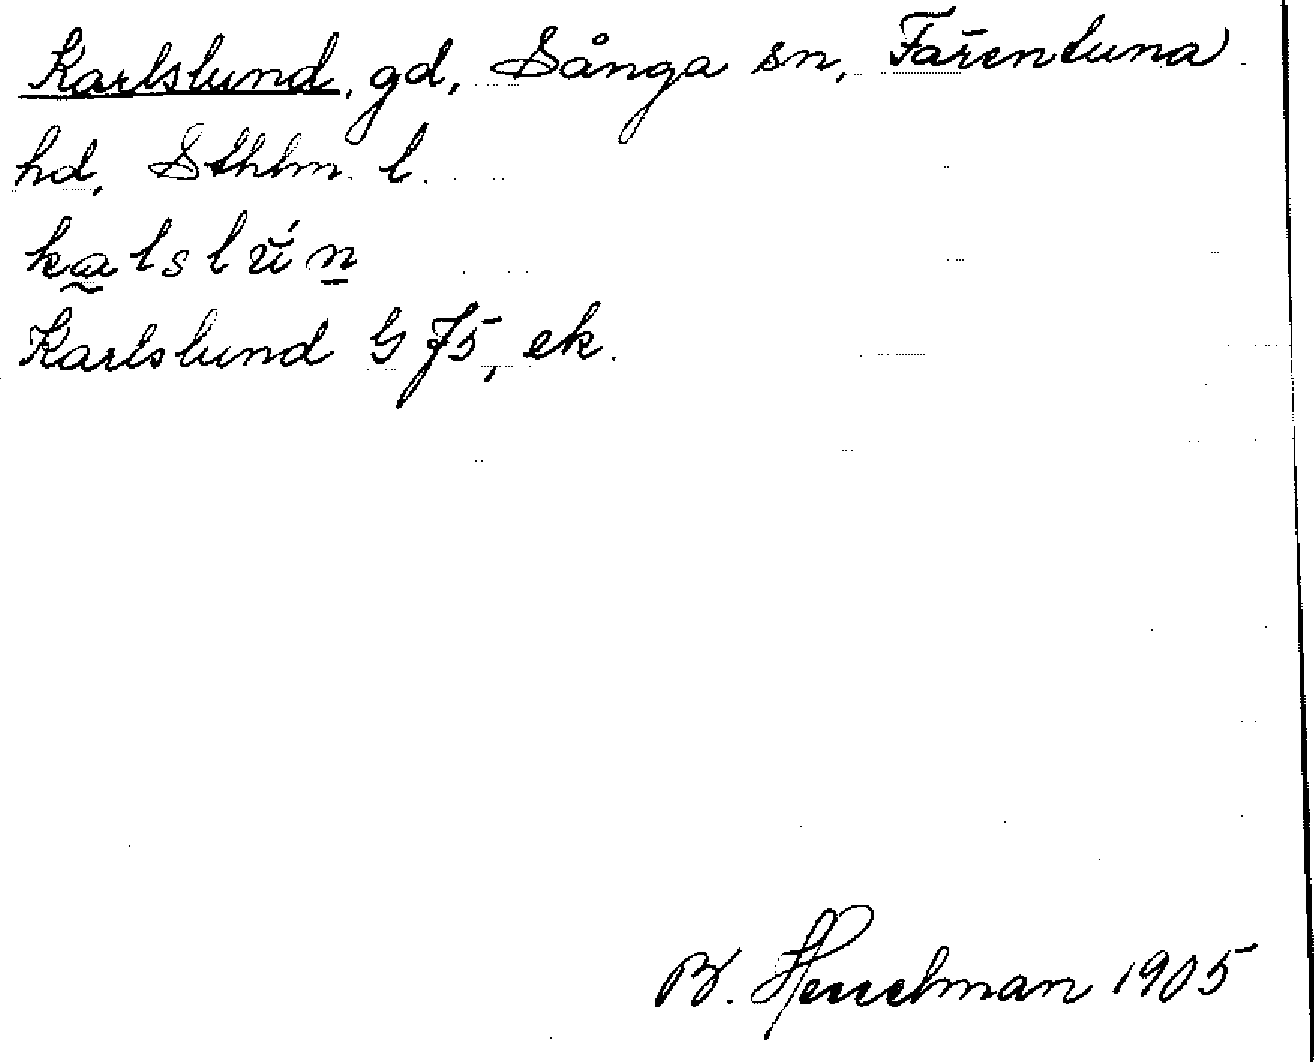 Karlslund, gd, Sånga sn, Färentuna
hd, Sthlm. l.
kalslún
Karlslund G 75, ek.
B. Hesselman 1905